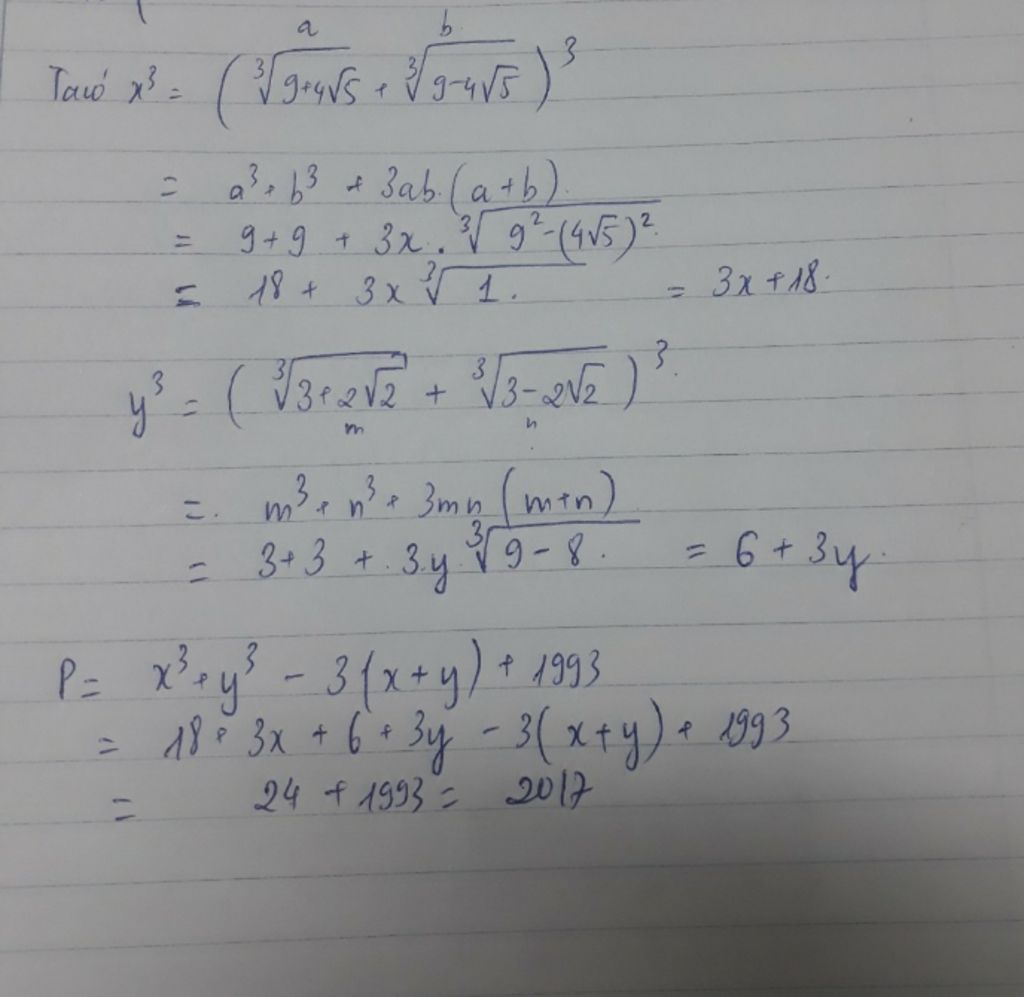 a b
Ta có x³ = (∛(9+4√5) + ∛(9-4√5))³
= a³ + b³ + 3ab.(a+b).
= 9+9 + 3x . ∛(9²-(4√5)²).
= 18 + 3x ∛1. = 3x+18.
y³ = (∛(3+2√2) + ∛(3-2√2))³.
m n
=. m³ + n³ + 3mn (m+n)
= 3+3 + .3.y ∛(9-8). = 6 + 3y.
P = x³ + y³ - 3(x+y) + 1993
= 18 + 3x + 6 + 3y - 3(x+y) + 1993
= 24 + 1993 = 2017